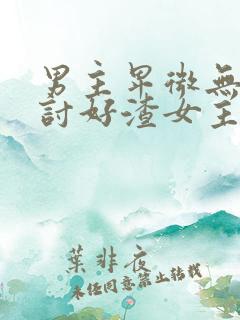 男主卑微無
討好渣女主
葉非夜
未經同意禁止轉載